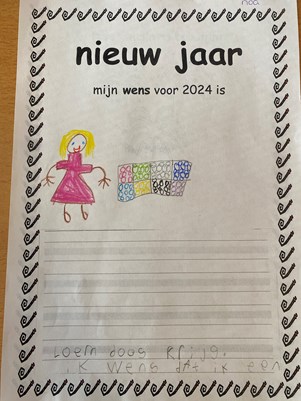 nieuw jaar
mijn wens voor 2024 is
Loem doog krijg.
ik wens dat ik een